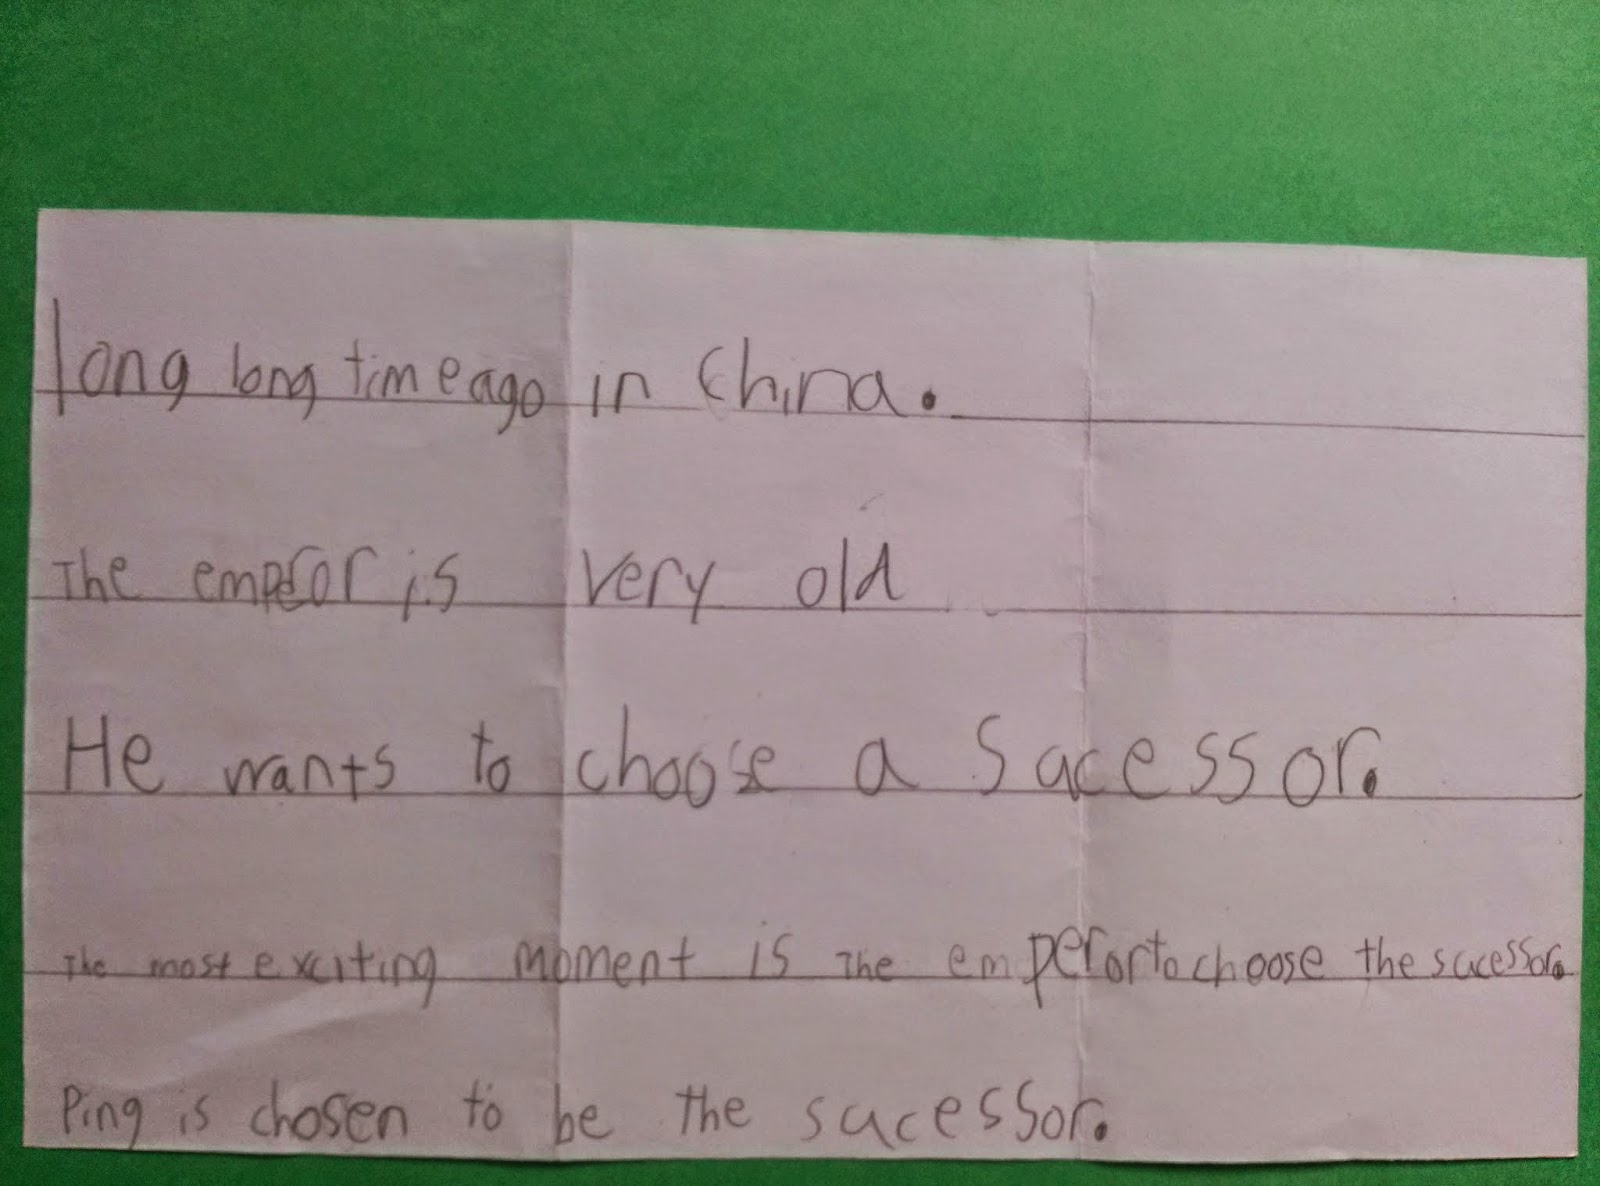 long long time ago in China.
The emperor is very old
He wants to choose a sucessor.
The most exciting moment is The emperor to choose the sucessor.
Ping is chosen to be the sucessor.